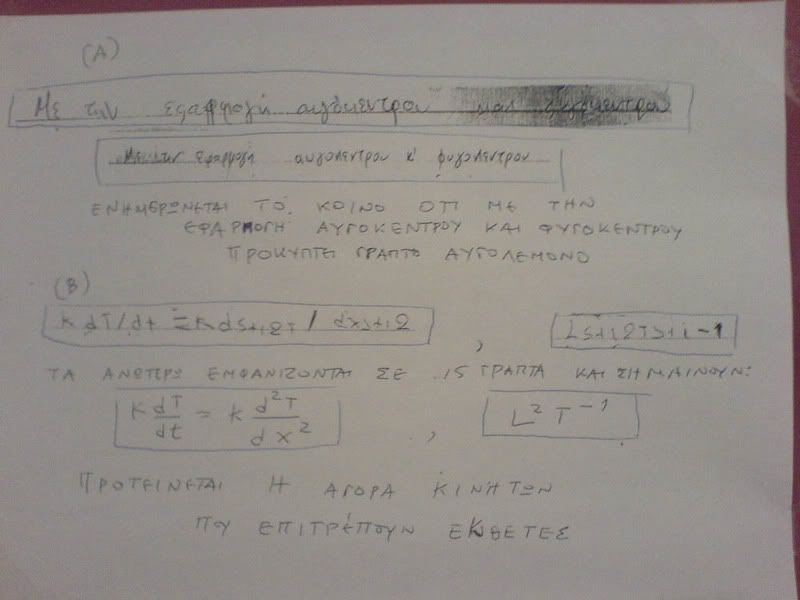 (A)
Με την εφαρμογή αυγόκεντρου και φυγόκεντρου
Με την εφαρμογή αυγόκεντρου κ' φυγόκεντρου
ΕΝΗΜΕΡΩΝΕΤΑΙ ΤΟ ΚΟΙΝΟ ΟΤΙ ΜΕ ΤΗΝ
ΕΦΑΡΜΟΓΗ ΑΥΓΟΚΕΝΤΡΟΥ ΚΑΙ ΦΥΓΟΚΕΝΤΡΟΥ
ΠΡΟΚΥΠΤΕΙ ΓΡΑΠΤΟ ΑΥΓΟΛΕΜΟΝΟ
(B)
K dT/dt = K ds+i2T / dxs+i2 , Ls+i2Ts+i-1
ΤΑ ΑΝΩΤΕΡΩ ΕΜΦΑΝΙΖΟΝΤΑΙ ΣΕ .15 ΓΡΑΠΤΑ ΚΑΙ ΣΗΜΑΙΝΟΥΝ:
K dT/dt = k d²T/dx² , L² T⁻¹
ΠΡΟΤΕΙΝΕΤΑΙ Η ΑΓΟΡΑ ΚΙΝΗΤΩΝ
ΠΟΥ ΕΠΙΤΡΕΠΟΥΝ ΕΚΘΕΤΕΣ